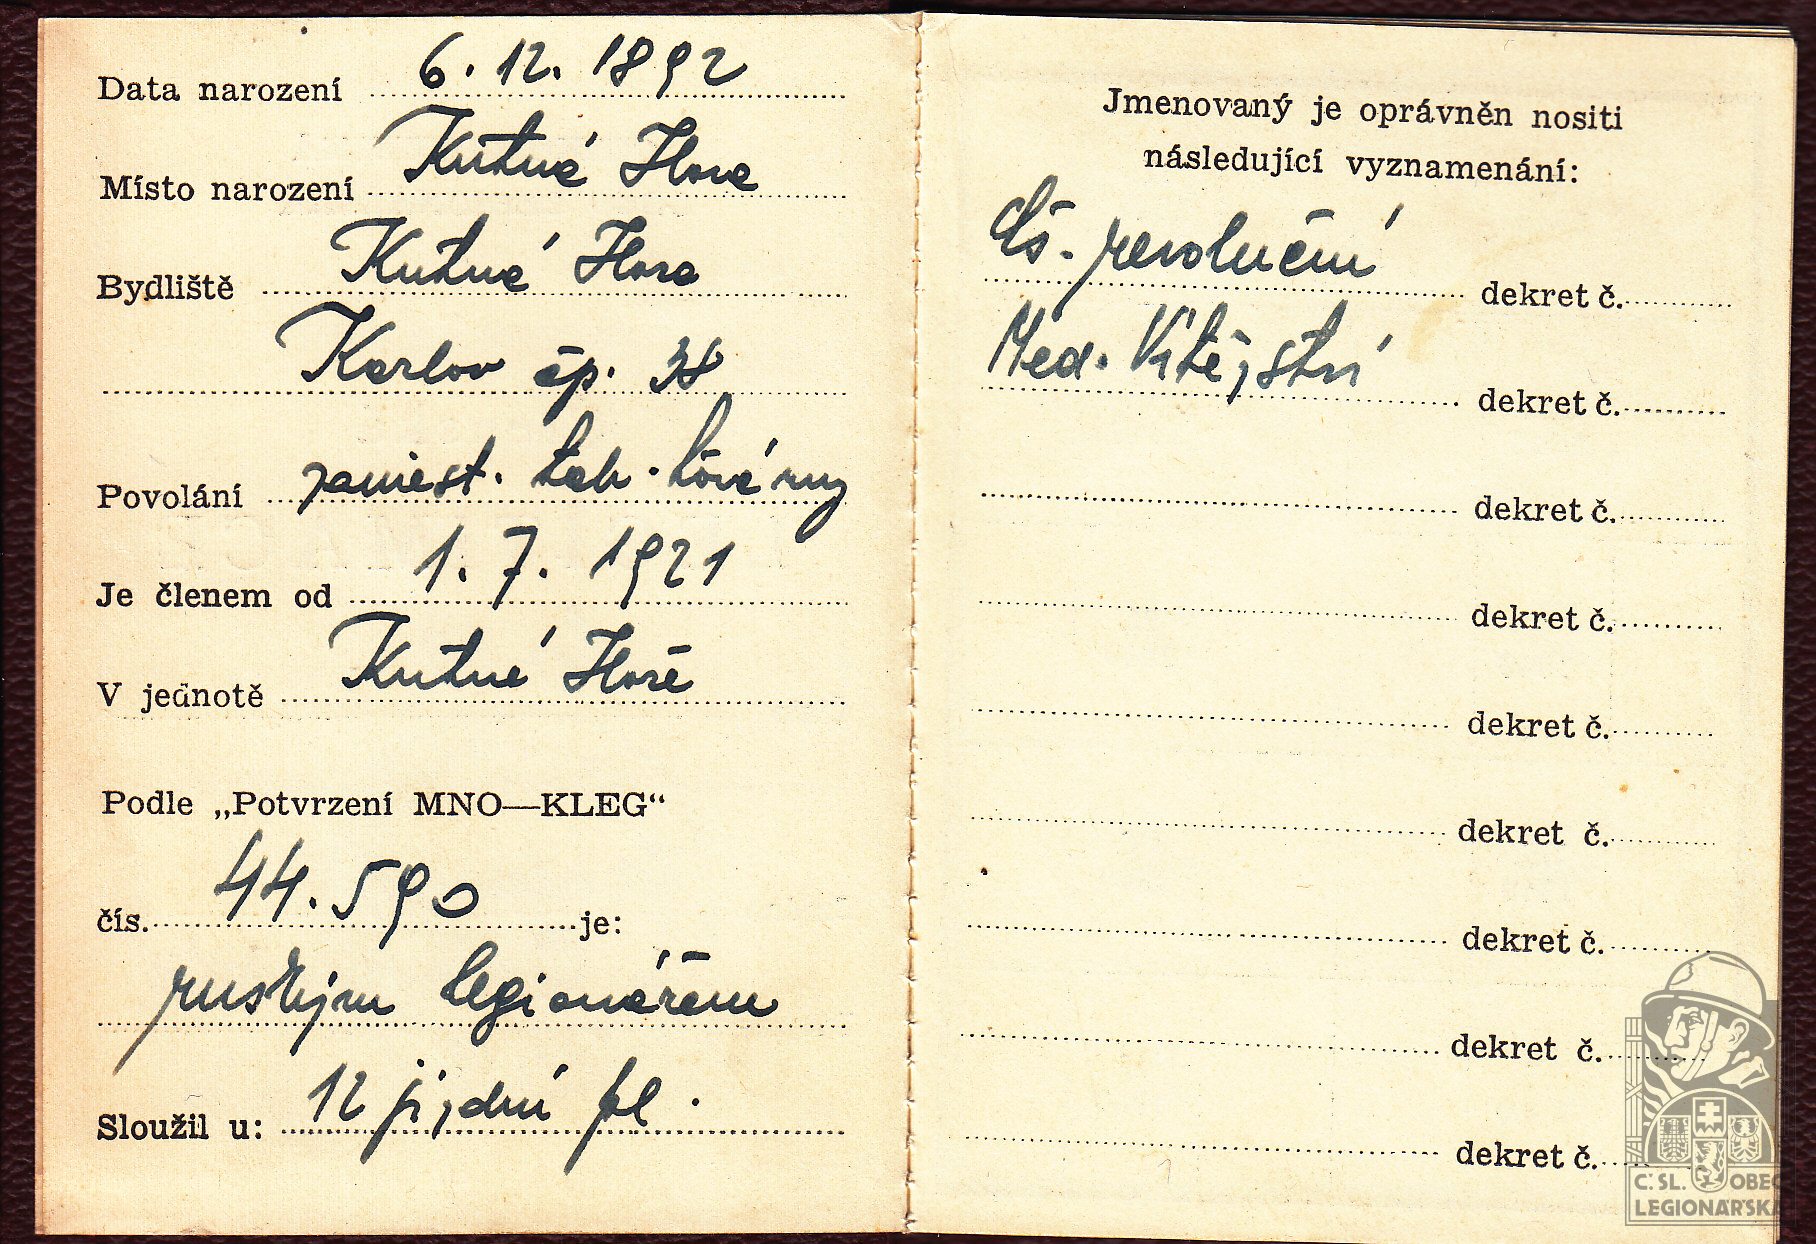 Data narození 6. 12. 1892
Místo narození Kutná Hora
Bydliště Kutná Hora
Karlov čp. 38
Povolání zaměst. tab. továrny
Je členem od 1. 7. 1921
V jednotě Kutné Hoře
Podle „Potvrzení MNO—KLEG“
čís. 44.590 je:
ruským legionářem
Sloužil u: 12 jízdní pl.
Jmenovaný je oprávněn nositi
následující vyznamenání:
čs. revoluční dekret č.
Med. Vítějství dekret č.
dekret č.
dekret č.
dekret č.
dekret č.
dekret č.
dekret č.
dekret č.
Č. SL. OBEC
LEGIONÁŘSKÁ